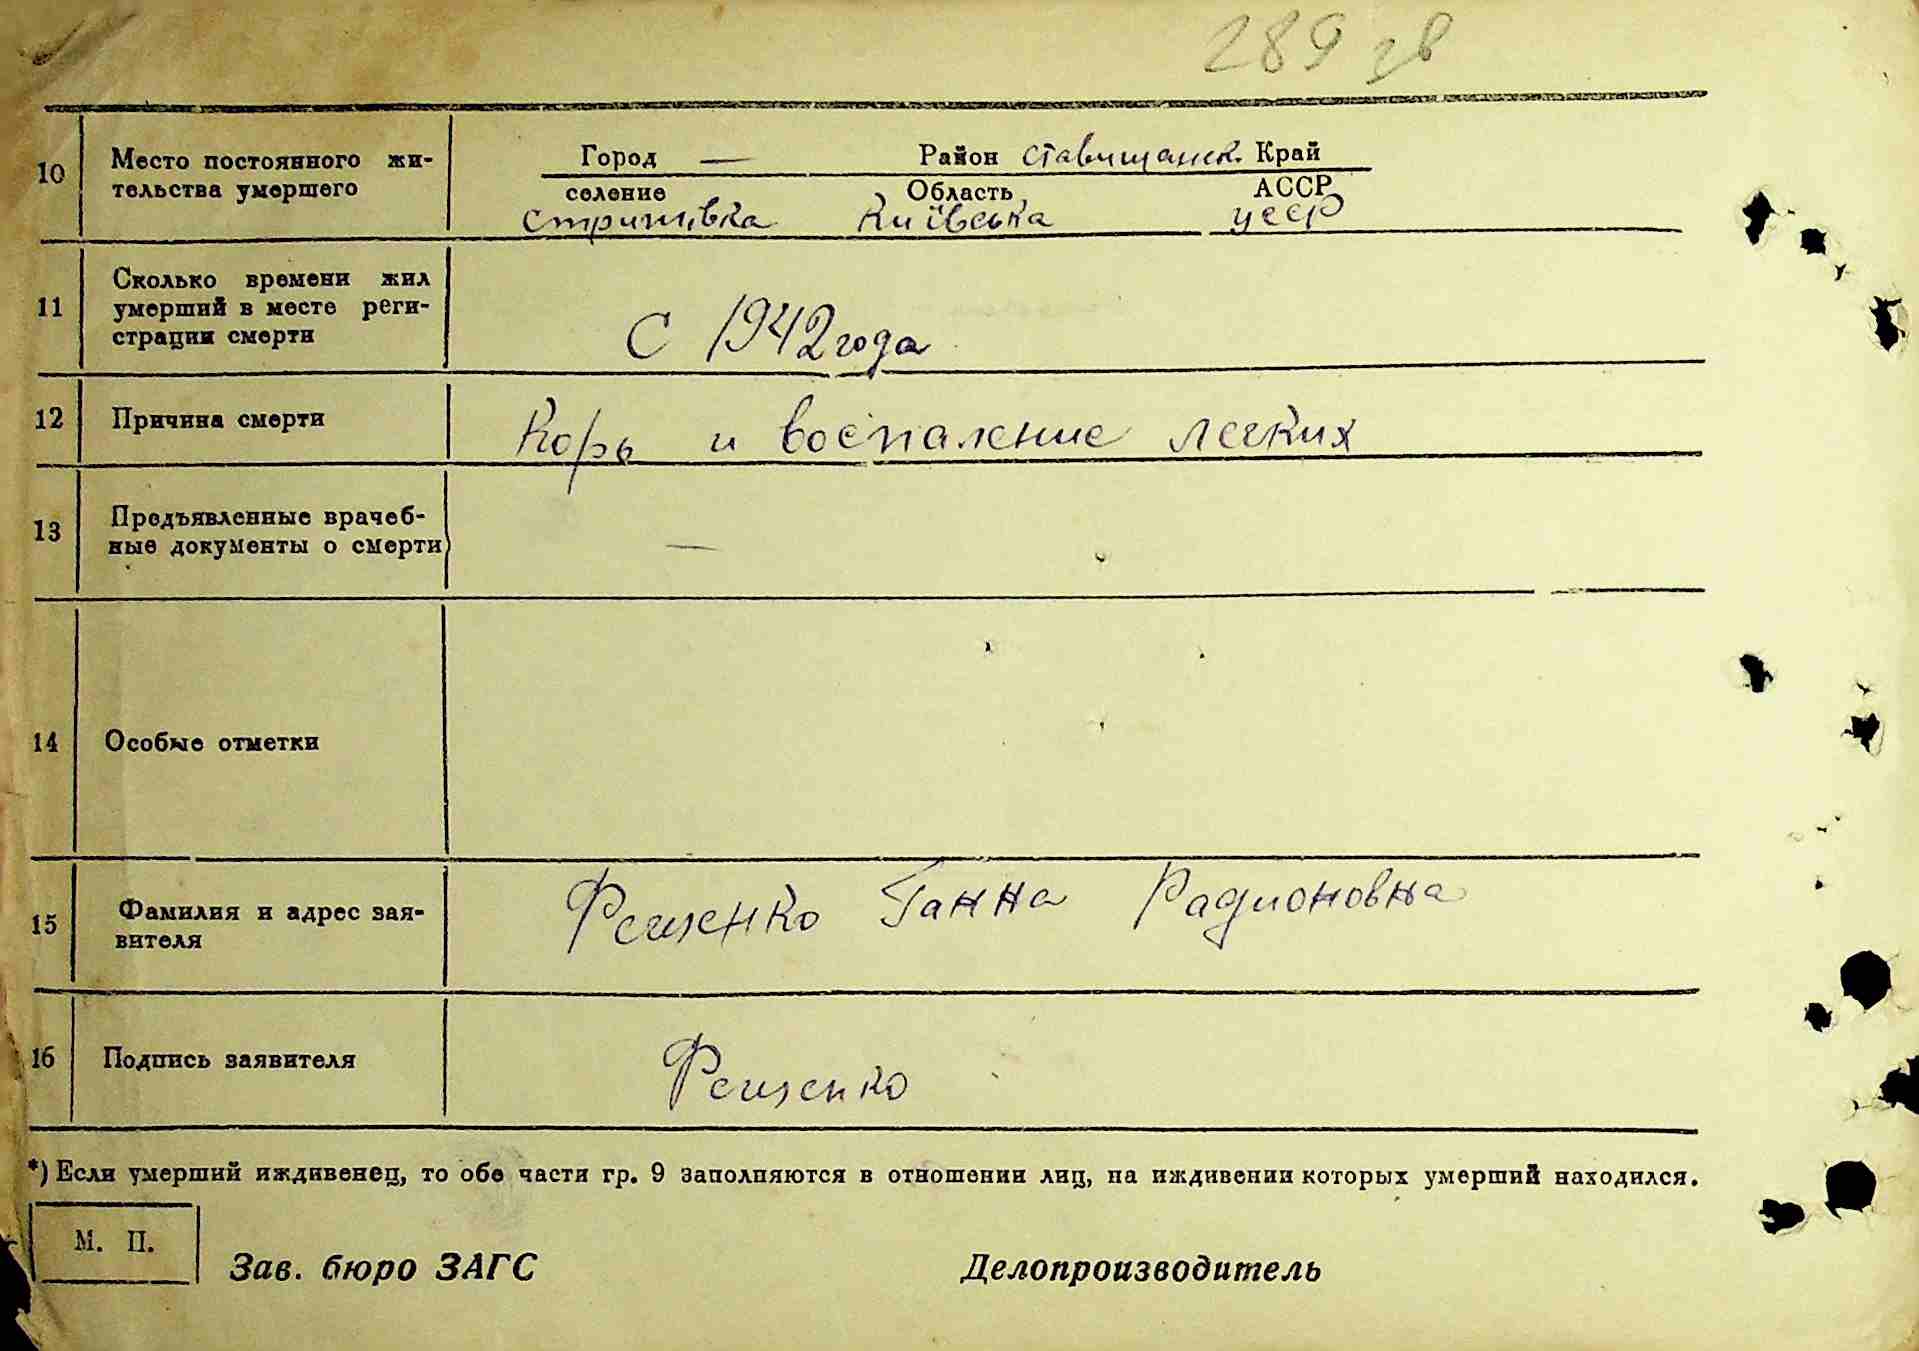 289 зв
10 Место постоянного жи-
тельства умершего
Город — Район Ставищанск. Край
селение Область АССР
Стрижівка Київська УССР
11 Сколько времени жил
умерший в месте реги-
страции смерти
С 1942 года
12 Причина смерти
Корь и воспаление легких
13 Предъявленные врачеб-
ные документы о смерти
—
14 Особые отметки
15 Фамилия и адрес зая-
вителя
Фещенко Ганна Радионовна
16 Подпись заявителя
Фещенко
*) Если умерший иждивенец, то обе части гр. 9 заполняются в отношении лиц, на иждивении которых умерший находился.
М. П.
Зав. бюро ЗАГС Делопроизводитель